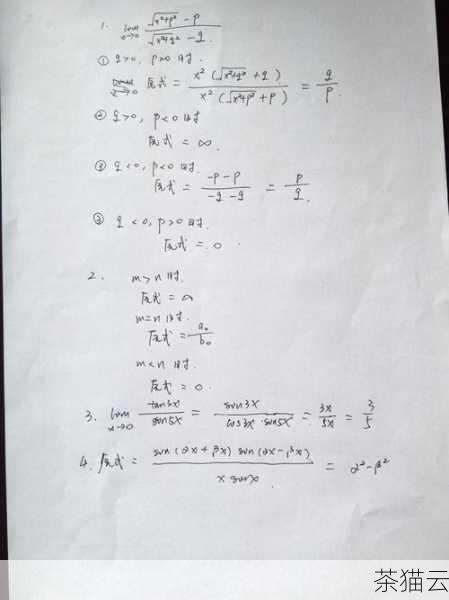 1. lim x→0 (√(x²+p²) - p) / (√(x²+q²) - q)
① q>0, p>0 时.
x→0 原式 = x²(√(x²+q²) + q) / x²(√(x²+p²) + p) = q/p.
② q>0, p<0 时
原式 = ∞.
③ q<0, p<0 时.
原式 = (-p-p) / (-q-q) = p/q.
q<0, p>0 时.
原式 = 0.
2. m>n 时.
原式 = ∞
m=n 时.
原式 = a₀/b₀
m<n 时.
原式 = 0.
3. lim x→0 tan3x / sin5x = sin3x / (cos3x·sin5x) = 3x/5x = 3/5
4. 原式 = sin(αx+βx) sin(αx-βx) / (x sinx) = α²-β²
茶猫云